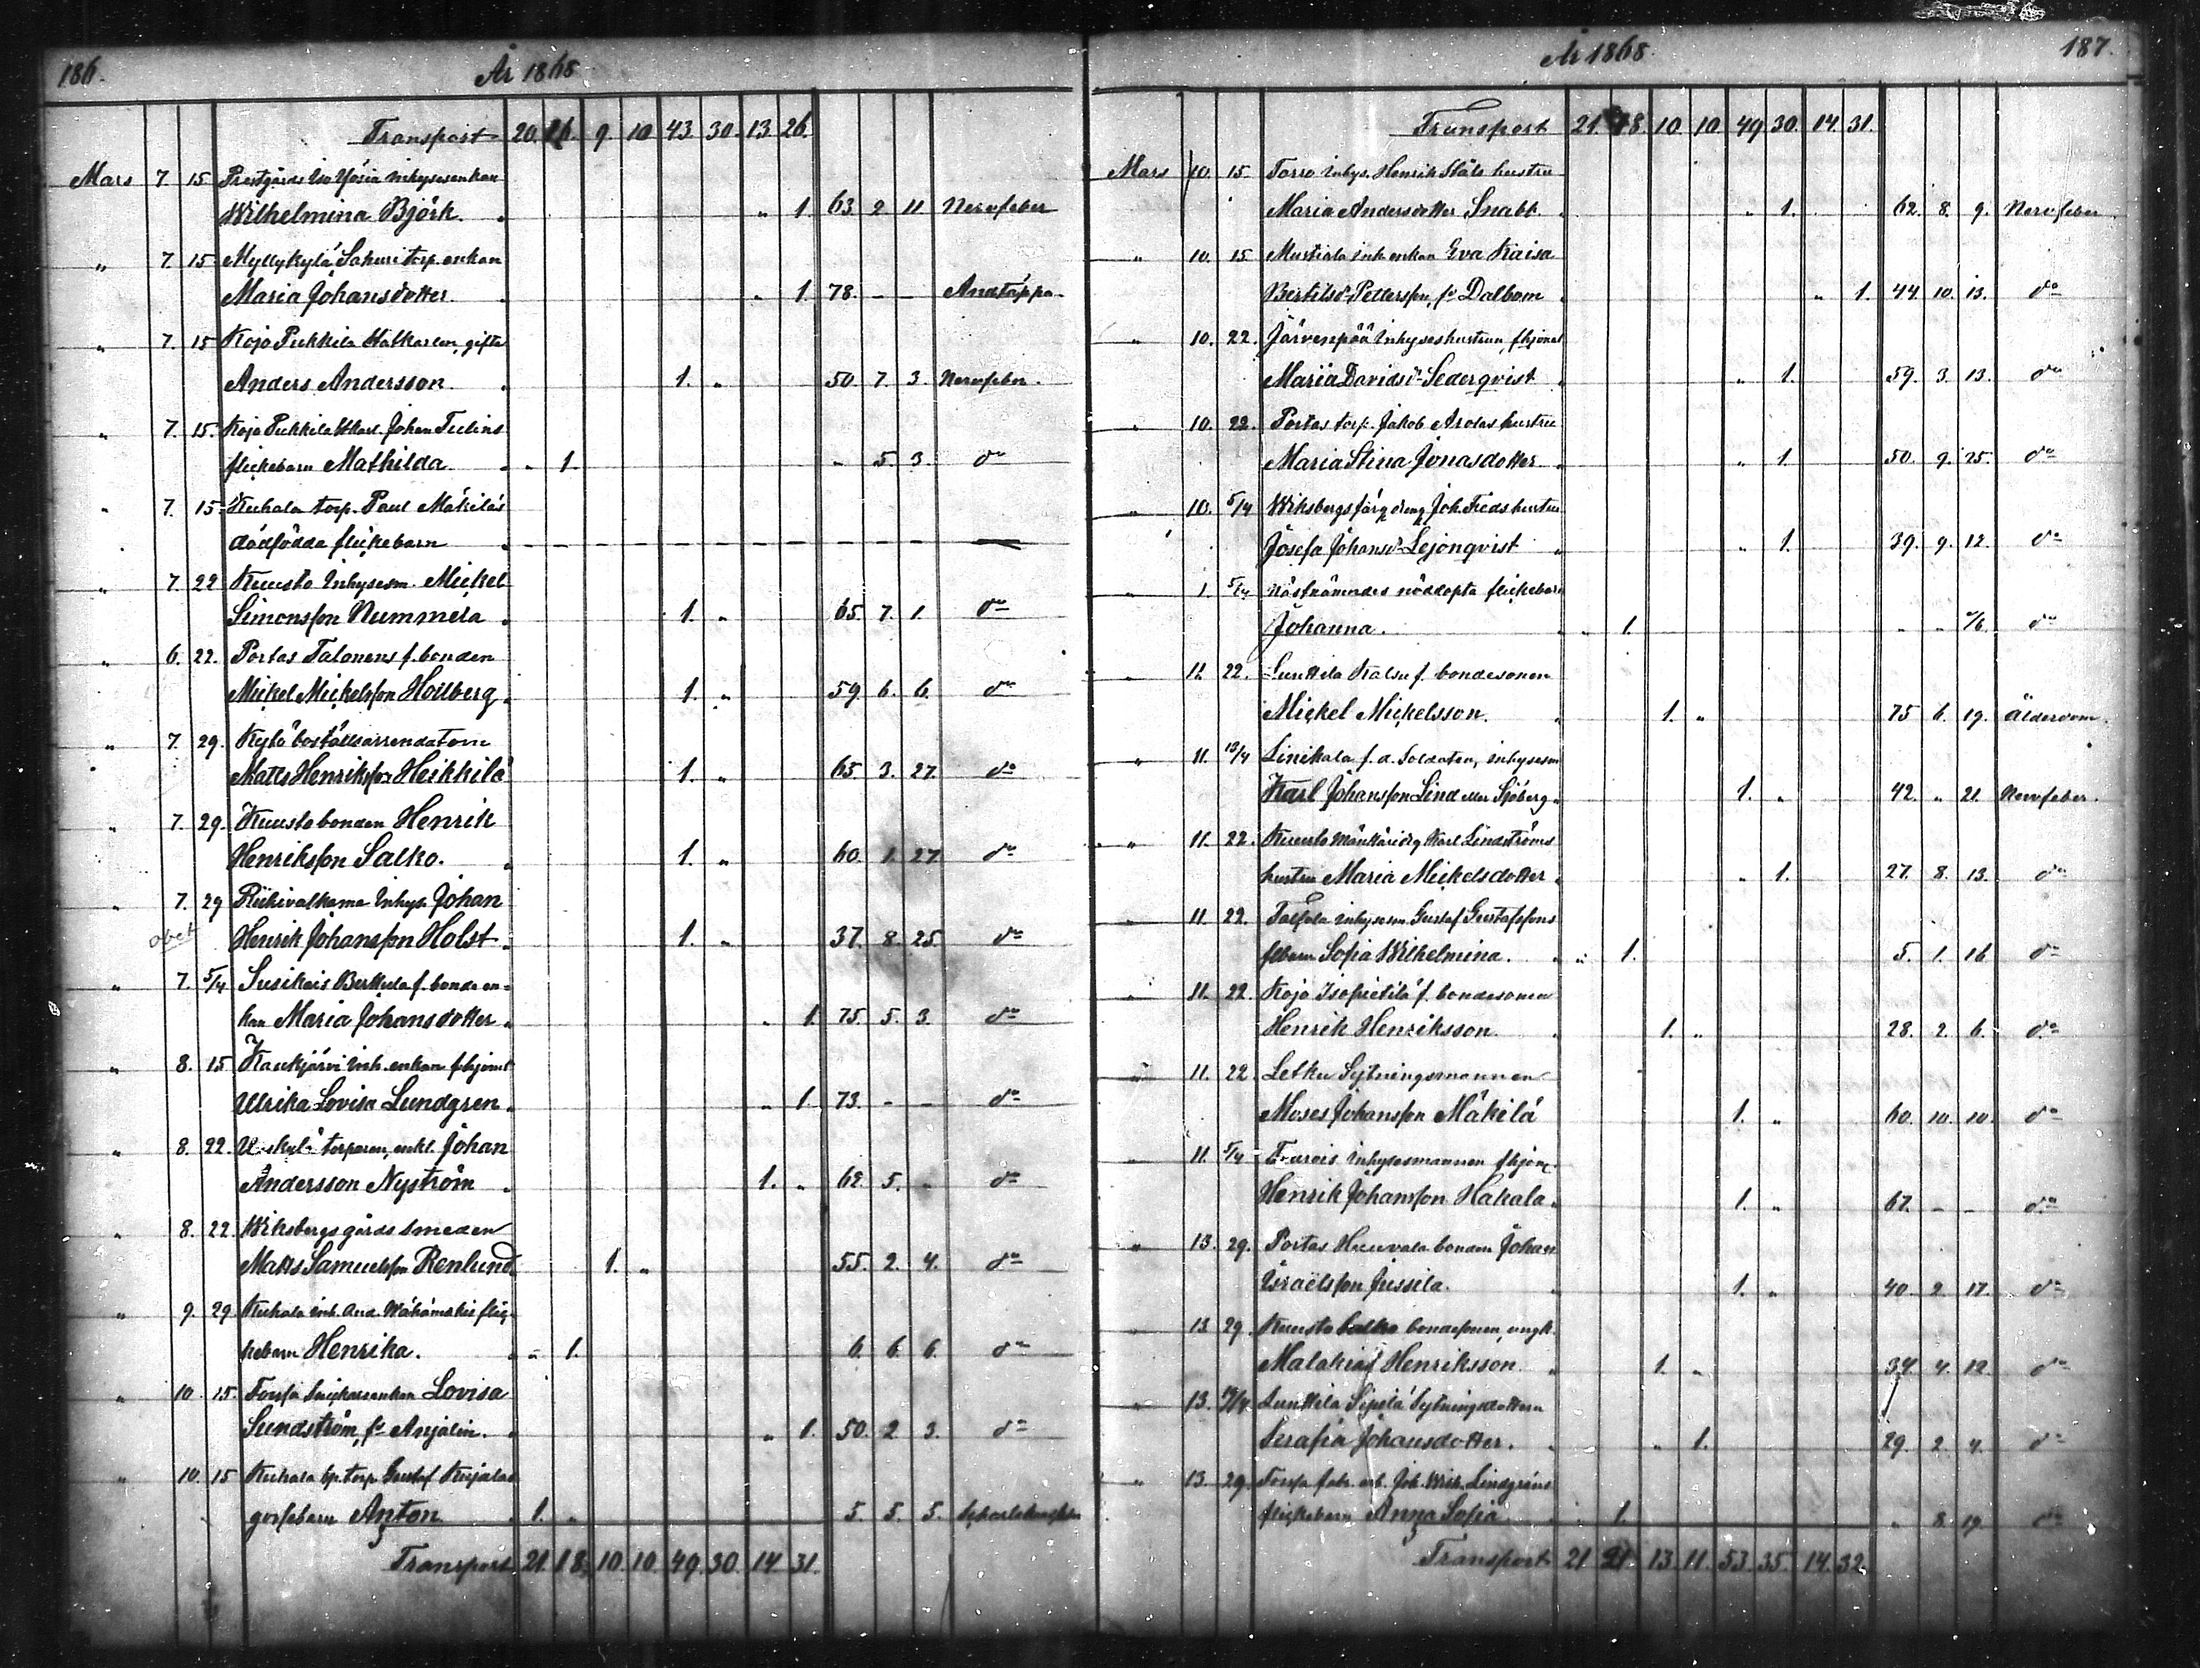 186.
År 1868
Transport 20. 16. 9. 10 43. 30. 13. 26.
Mars 7. 15 Prestgårds Iso Yösiä inhysesenkan
Wilhelmina Björk. " 1. 63 2 11 Nervfeber
" 7. 15 Myllykylä Sakuri torp. enkan
Maria Johansdotter " 1. 78. - - Andtäppa
" 7. 15 Kojo Pukkila Statkarlen, gifte
Anders Andersson 1. " 50. 7. 3. Nervfeber.
" 7. 15. Kojo Pukkila Stkarl. Johan Tulins
flickebarn Mathilda " 1. " 5. 3. do
" 7. 15. Kuhala torp. Paul Mäkiläs
dödfödda flickebarn
" 7. 22 Kuusto Inhysesm. Mickel
Simonsson Nummela 1. " 65. 7. 1. do
" 6. 22. Portas Talonens f. bonden
Mickel Mickelsson Hollberg 1. " 59. 6. 6. do
" 7. 29. Kylä boställsarrendatorn
Matts Henriksson Heikkilä 1. " 65. 3. 27. do
" 7. 29. Kuusto bonden Henrik
Henriksson Salko. 1. " 60. 1. 27. do
" 7. 29 Riihivalkama Inhys. Johan
Henrik Johansson Holst. 1. " 37. 8. 25. do
" 7. 5/4 Susikais Berttula f. bonde en-
kan Maria Johansdotter. " 1. 75. 5. 3. do
" 8. 15 Kaukjärvi inh. enkan fhjonet
Ulrika Lovisa Lundgren. " 1. 73. - - do
" 8. 22. torparen, enkl. Johan
Andersson Nyström 1. " 62. 5. " do
" 8. 22. Wiksbergs gårds Smeden
Matts Samuelsson Renlund 1. " 55. 2. 4. do
" 9. 29. Kuhala inh. And. Wähämäkis flic-
kebarn Henrika. " 1. 6. 6. 6. do
" 10. 15. Forssa Snickarenkan Lovisa
Sundström, fd Anjelin. " 1. 50. 2. 3. do
" 10. 15 Kuhala torp. Gustaf Kujalas
gossebarn Anton 1. " 5. 5. 5.
Transport 21. 18. 10. 10. 49. 30. 14 31.
År 1868.
187.
Transport 21. 18. 10. 10 49 30. 14. 31.
Mars 10. 15 Torro Inhys. Henrik Ståls hustru
Maria Andersdotter Snabb. " 1. 62. 8. 9. Nervfeber
" 10. 15 Mustiala inh. enkan Eva Kaisa
Bertilsdr Pettersson, fd Dalbom " 1. 44. 10. 13. do
" 10. 22. Järvenpää Inhyseshustrun fhjonet
Maria Davidsdr Sederqvist " 1. 59. 3. 13. do
" 10. 22. Portas torp. Jakob Arolas hustru
Maria Stina Jonasdotter " 1. 50. 9. 25. do
" 10. 5/4 Wiksbergs Joh. Frids hustru
Josefa Johansdr Lejonqvist " 1. 39. 9. 12. do
" 1. 5/4 Nästnämndes nöddöpta flickebarn
Johanna. " 1. " " do
" 11. 22. Lunttila Kalsu f. bondesonen
Mickel Mickelsson. 1. " 75 6. 19. Ålderdom.
" 11. 13/4 Linikala f. d. Soldaten, inhysesm
Karl Johansson Lind eller Sjöberg. 1. " 42. " 21. Nervfeber.
" 11. 22. Kuusto Mänkäri drg Karl Lindströms
hustru Maria Mickelsdotter " 1. 27. 8. 13. do
" 11. 22. Talpela inhysesm Gustaf Gustafssons
flbarn Sofia Wilhelmina. " 1. 5. 1. 16 do
" 11. 22. Kojo Isopietilä f. bondesonen
Henrik Henriksson. 1. " 28. 2. 6. do
" 11. 22. Letku Sytningsmannen
Moses Johansson Mäkilä 1. " 60. 10. 10. do
" 11. 5/4 inhysesmannen fhjon
Henrik Johansson Hakala. 1. " 67. - - do
" 13. 29. Portas Huuvala bonden Johan
Israëlsson Jussila. 1. " 40. 2. 17. do
13. 29. Kuusto Salko bondesonen, ungk.
Malakias Henriksson 1. " 34 4. 12. do
" 13. 19/4 Lunttila Sipilä Sytningsdottern
Serafia Johansdotter. " 1. 29. 2. 4. do
" 13. 29. Forssa fabr. arb. Joh. Wilh. Lindgrens
flickebarn Anna Sofia " 1. " 8. 19. do
Transport 21 21. 13. 11. 53. 35. 14. 32.